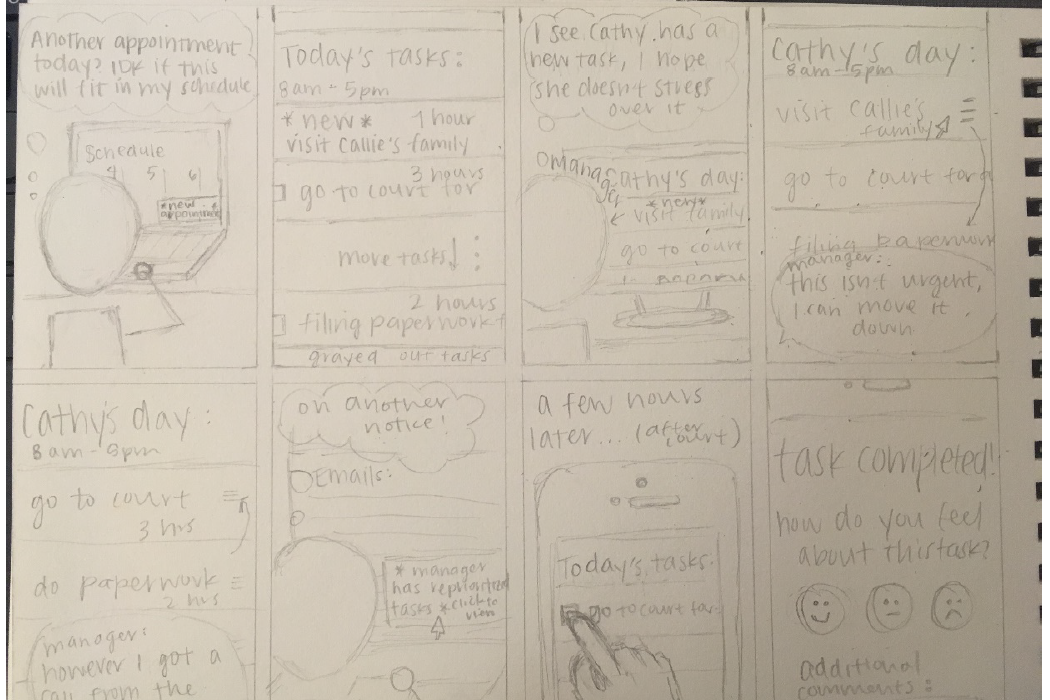 Another appointment
today? IDK if this
will fit in my schedule
Schedule
4 5 6
*new
appointment
Today's tasks:
8am-5pm
*new* 1 hour
visit Callie's family
3 hours
go to court for
move tasks↓
2 hours
filing paperwork f
grayed out tasks
I see Cathy has a
new task, I hope
she doesn't stress
over it
Cathy's day:
*new*
← visit family
go to court
Cathy's day:
8am-5pm
visit Callie's
family
go to court for
filing paperwork
manager:
this isn't urgent,
I can move it
down
Cathy's day:
8am-5pm
go to court
3 hrs
do paperwork
2 hrs
manager:
however I got a
call from the
oh another
notice!
Emails:
* manager
has reprioritized
tasks *click to
view
a few hours
later... (after
court)
Today's tasks:
go to court for
task completed!
how do you feel
about this task?
additional
comments: